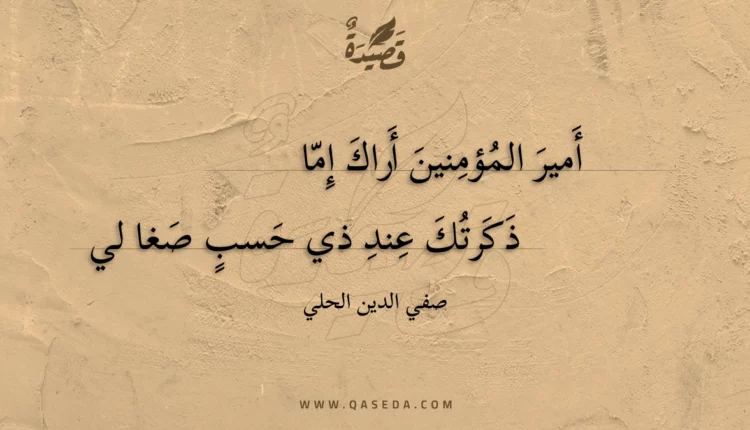 قَصِيدَةٌ
أَميرَ المُؤمِنينَ أَراكَ إِمّا
ذَكَرتُكَ عِندِ ذي حَسبٍ صَغا لي
صفي الدين الحلي
WWW.QASEDA.COM